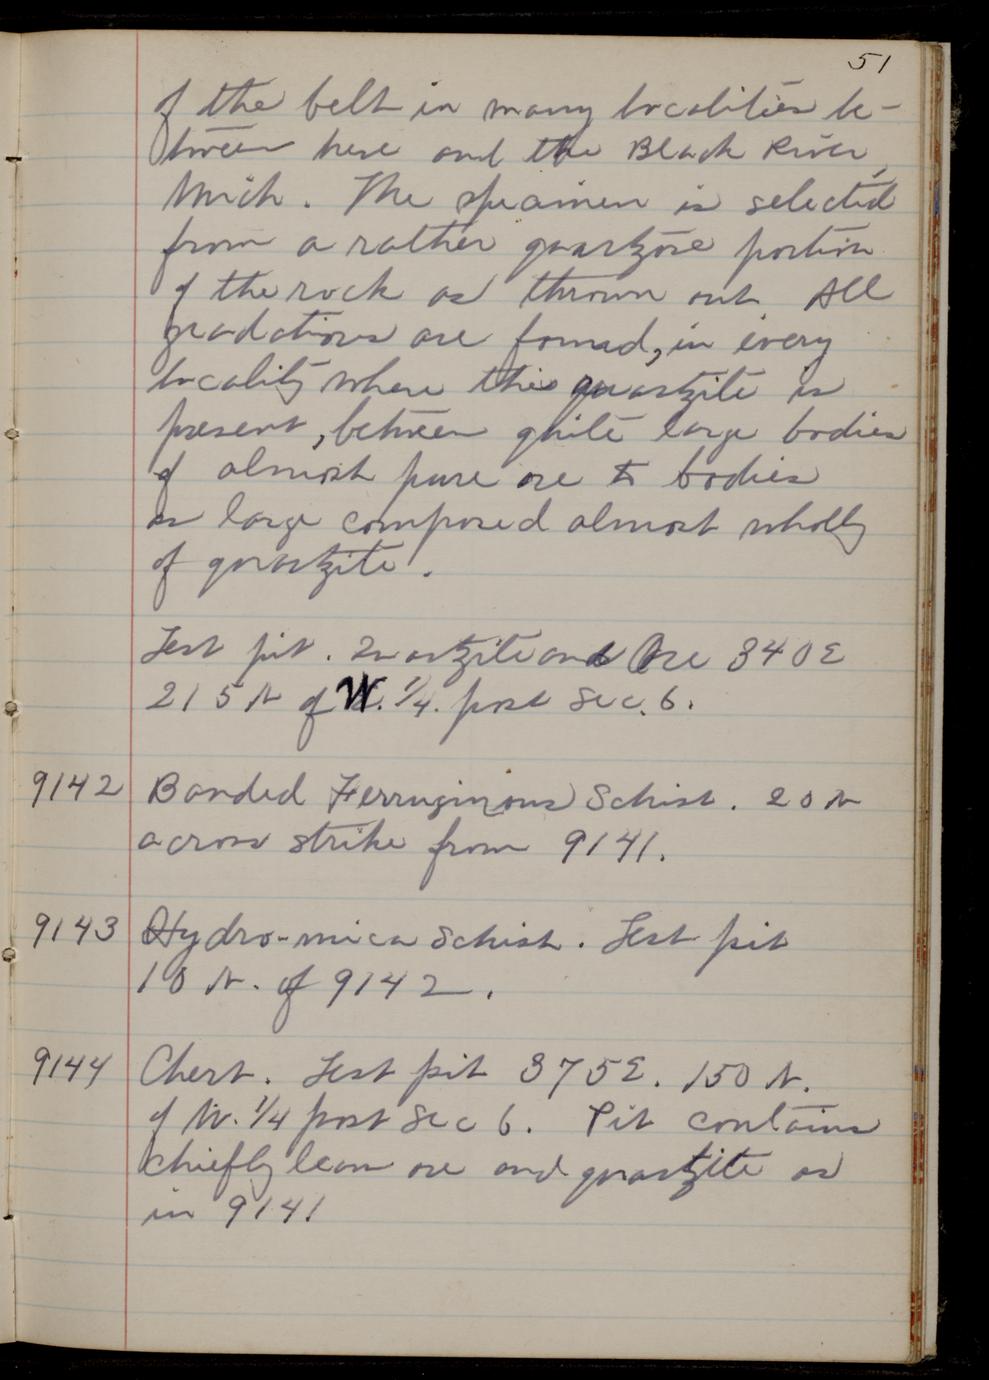 51
of the belt in many localities be-
tween here and the Black River,
Mich. The specimen is selected
from a rather quartzose portion
of the rock as thrown out All
gradations are found, in every
locality where this quartzite is
present, between quite large bodies
of almost pure ore to bodies
as large composed almost wholly
of quartzite.
Test pit. Quartzite and Ore 340 E
215 N of W. 1/4. post Sec. 6.
9142 Banded Ferruginous Schist. 20 N
across strike from 9141.
9143 Hydro-mica Schist. Test pit
10 N. of 9142.
9144 Chert. Test pit 375 E. 150 N.
of W. 1/4 post Sec 6. Pit contains
chiefly lean ore and quartzite as
in 9141